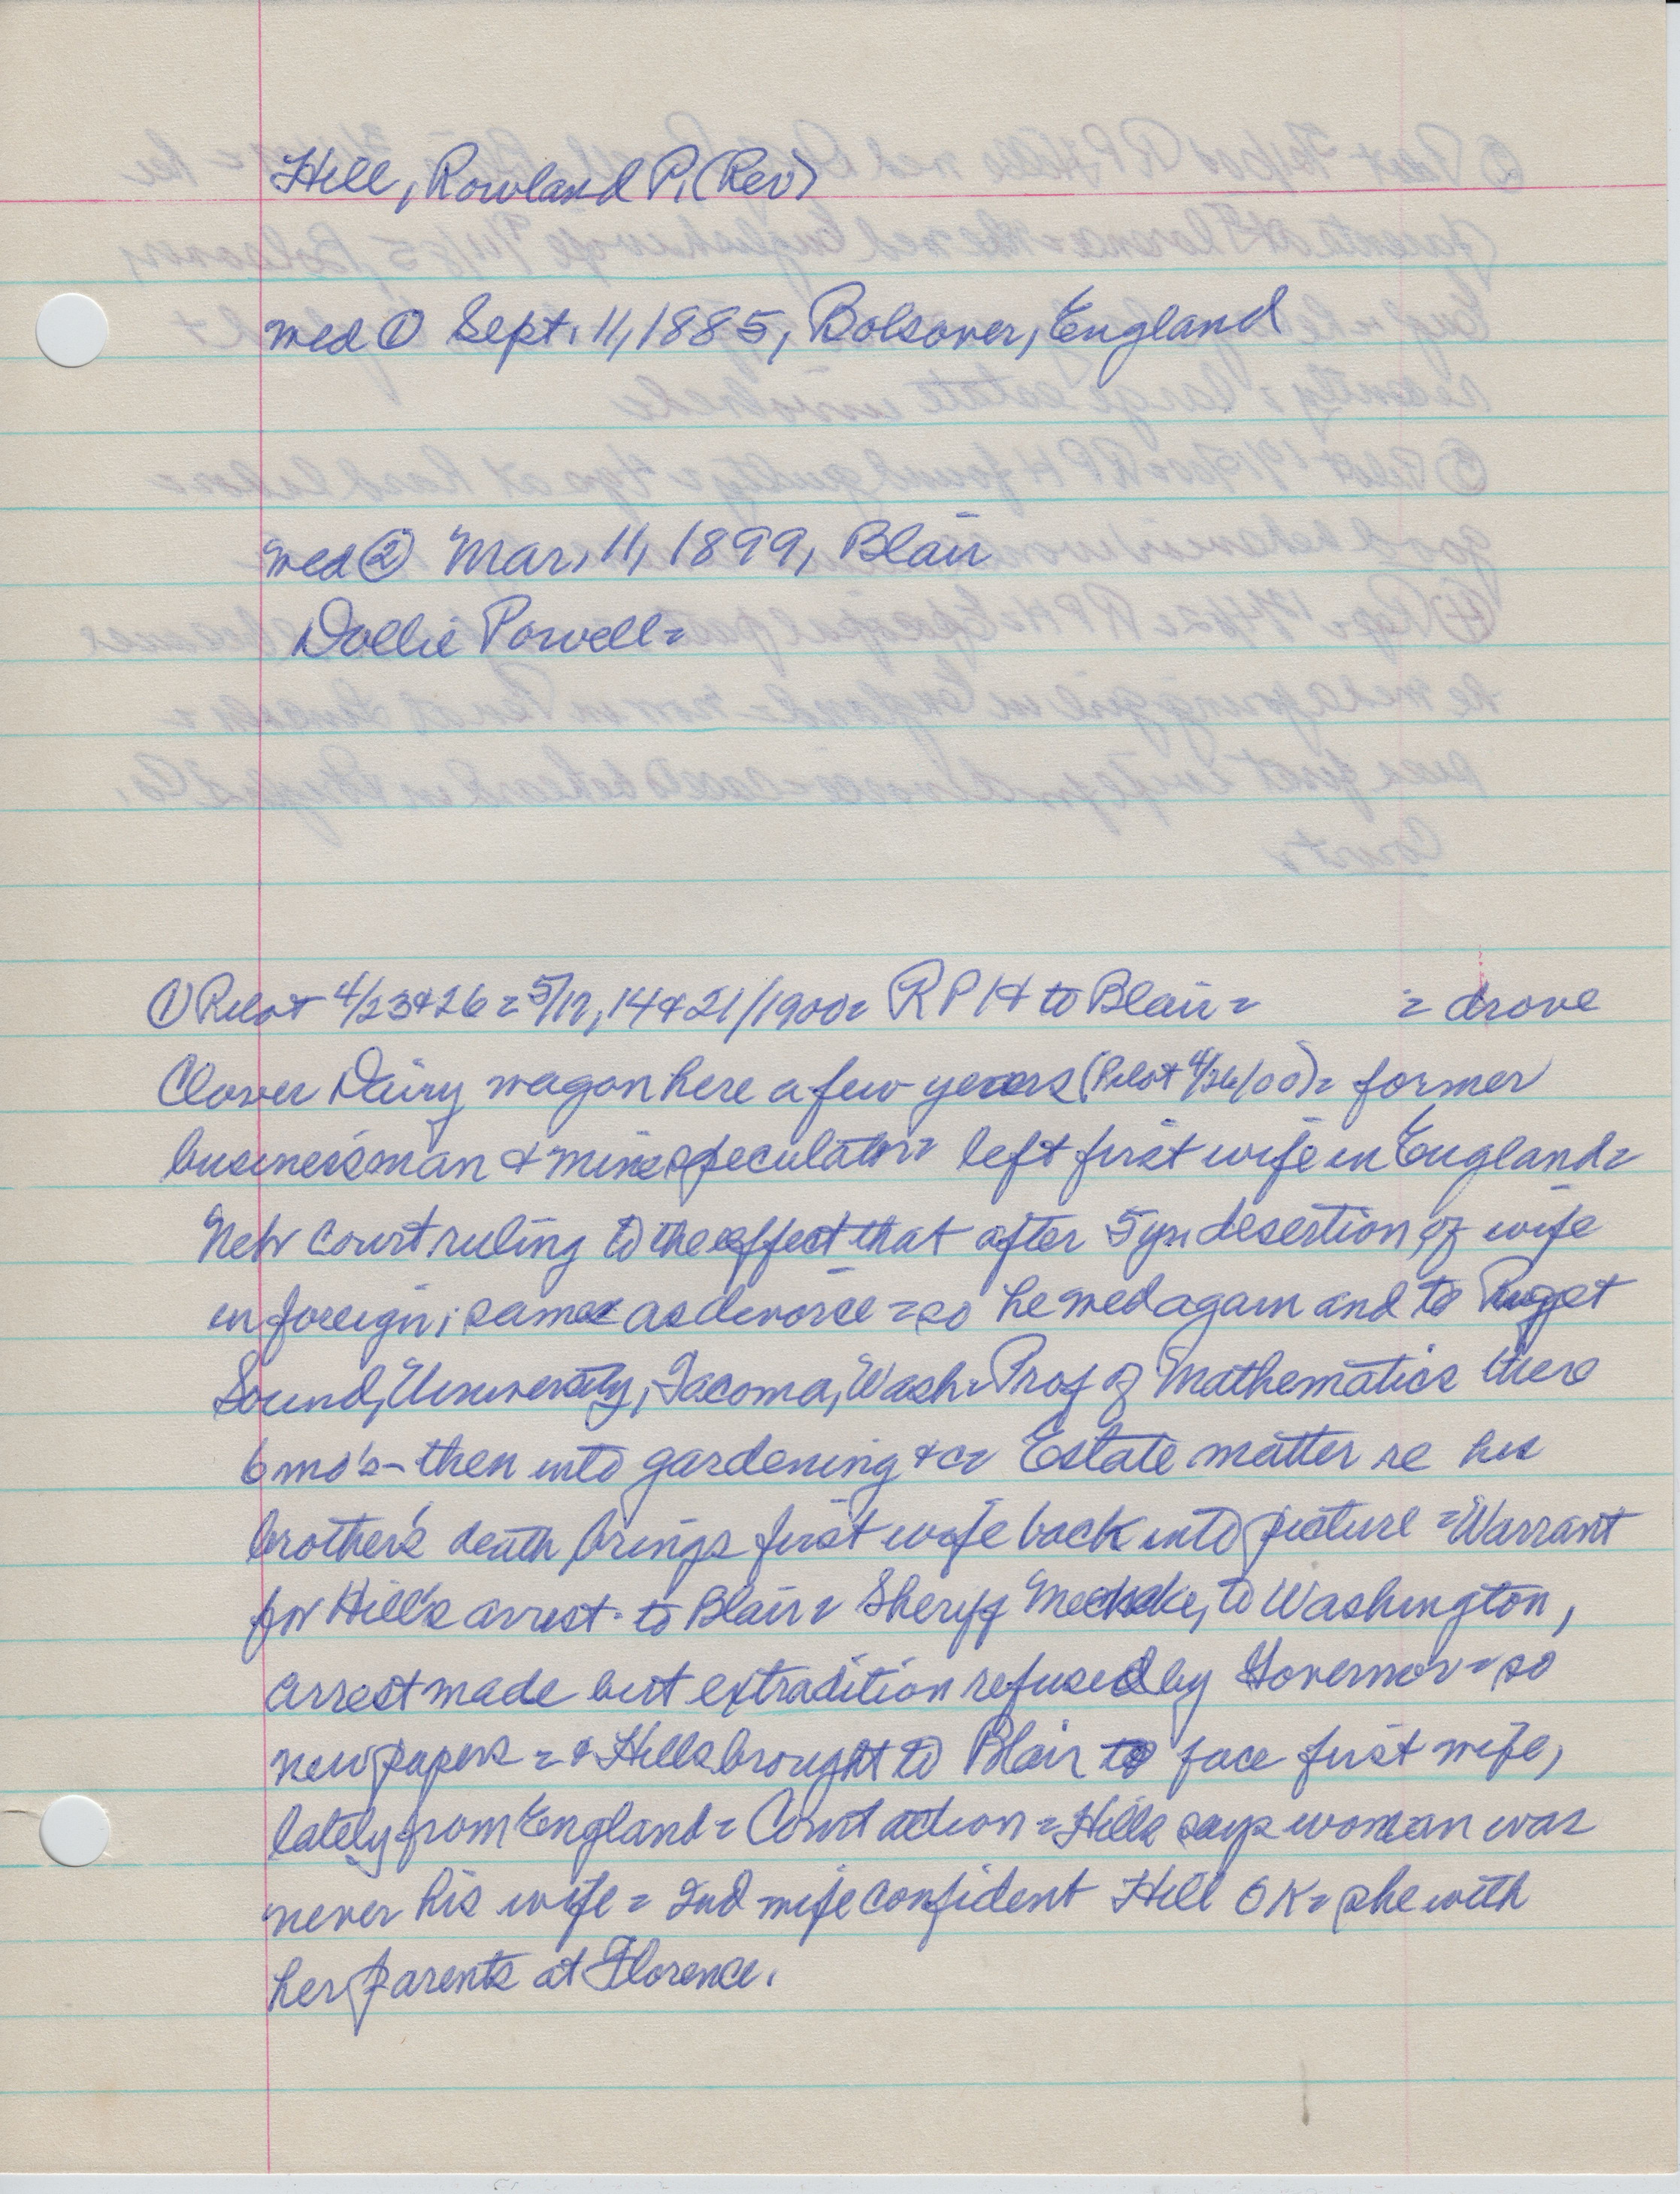 Hill, Rowland P. (Rev)
med ① Sept. 11, 1885, Bolsover, England
med ② Mar. 11, 1899, Blair
Dollie Powell =
① Pilot 4/23 & 26 = 5/17, 14 & 21/1900 = RPH to Blair = = drove
Clover Dairy wagon here a few years (Pilot 4/26/00) = former
businessman & mine speculator = left first wife in England =
Nebr court ruling to the effect that after 5 yrs desertion of wife
in foreign; same as divorce = so he wed again and to Puget
Sound, University, Tacoma, Wash. Prof of Mathematics there
6 mo's - then into gardening &c = Estate matter re his
brother's death brings first wife back into picture = Warrant
for Hill's arrest to Blair = Sheriff to Washington,
arrest made but extradition refused by Governor = so
new papers = & Hills brought to Blair to face first wife,
lately from England = Court action = Hills says woman was
never his wife = 2nd wife confident Hill OK = she with
her parents at Florence.